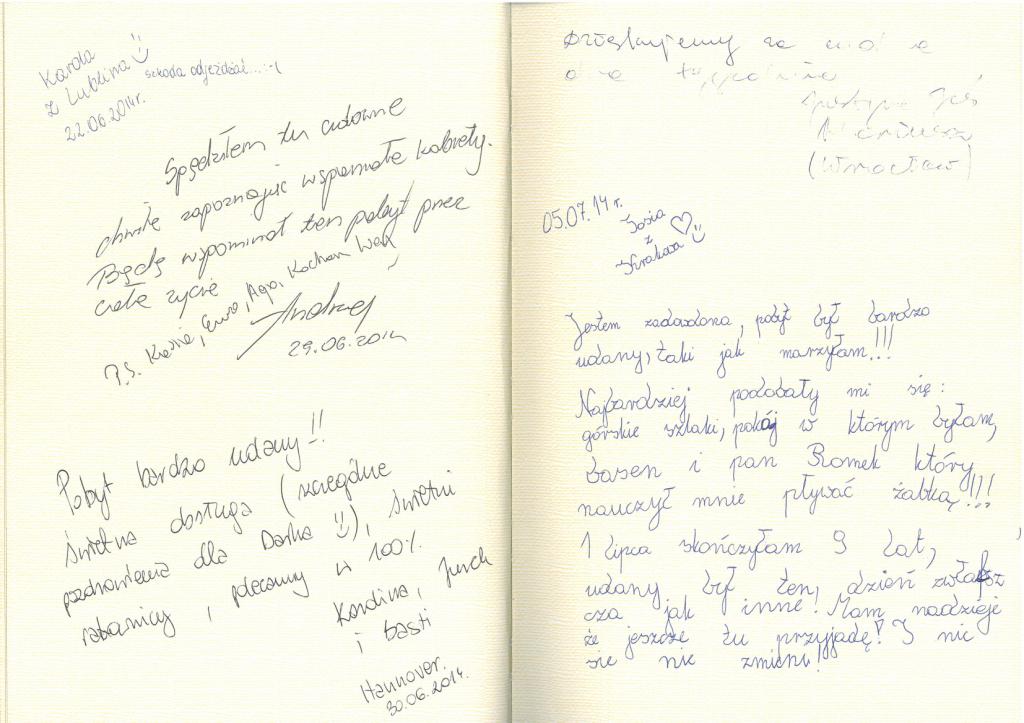 Karola
z Lublina
22.06.2014r.
szkoda odjeżdżać...:-(
Spędziłem tu cudowne
chwilę zapoznając wspaniałe kobiety.
Będę wspominał ten pobyt przez
całe życie
Andrzej
29.06.2014
P.S. Kasiu, Ewo, Ago, Kocham Was
Pobyt bardzo udany!!
Świetna obsługa (szczególne
pozdrowienia dla Darka), świetni
ratownicy, polecamy w 100%.
Karolina,
i Basti
Hannover.
30.06.2014.
Dziękujemy za
dwa tygodnie
(Wrocław)
05.07.14 r.
Zosia
z
Krakowa
Jestem zadowolona, pobyt był bardzo
udany, taki jak marzyłam!!!
Najbardziej podobały mi się:
górskie szlaki, pokój w którym byłam,
basen i pan Romek który
nauczył mnie pływać żabką!!!
1 lipca skończyłam 9 lat,
udany był ten, dzień zwłasz
cza jak inne! Mam nadzieje
że jeszcze tu przyjadę! I nic
sie nie zmieni!